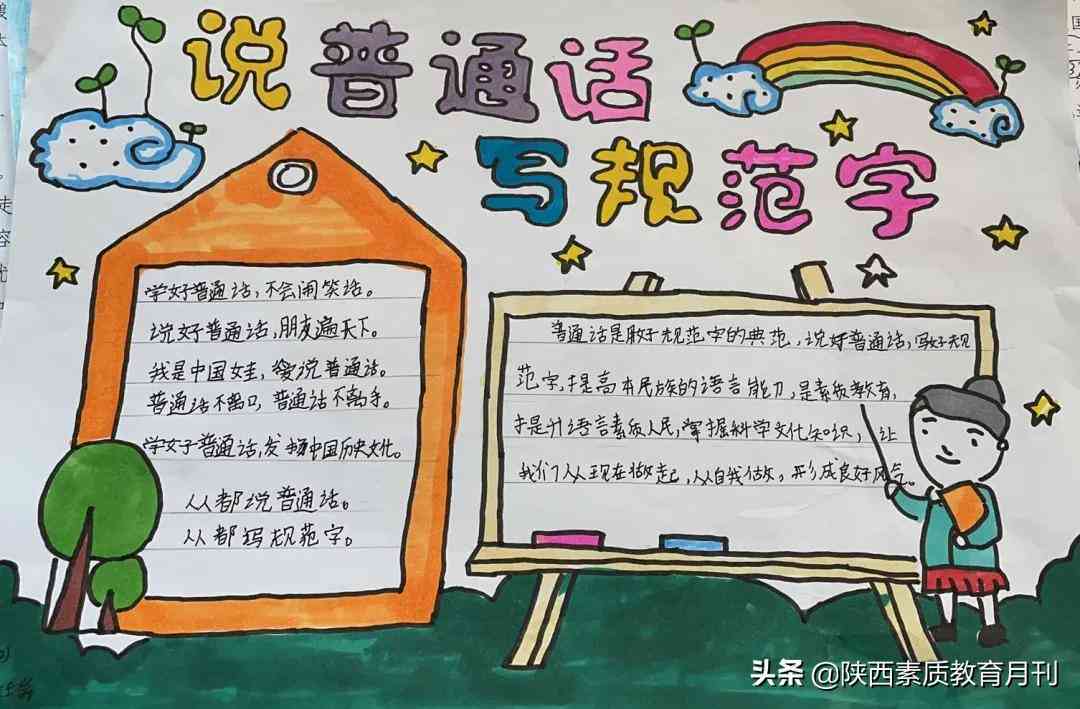 说普通话
写规范字
学好普通话，不会闹笑话。
说好普通话，朋友遍天下。
我是中国娃，爱说普通话。
普通话不离口，普通话不离手。
学好普通话，发扬中国历史文化。
人人都说普通话。
人人都写规范字。
普通话是规范字的典范，说好普通话，写好规
范字，提高本民族的语言能力，是素质教育，
提升语言素质人民，掌握科学文化知识，让
我们从现在做起，从自我做，形成良好风气。
头条 @陕西素质教育月刊